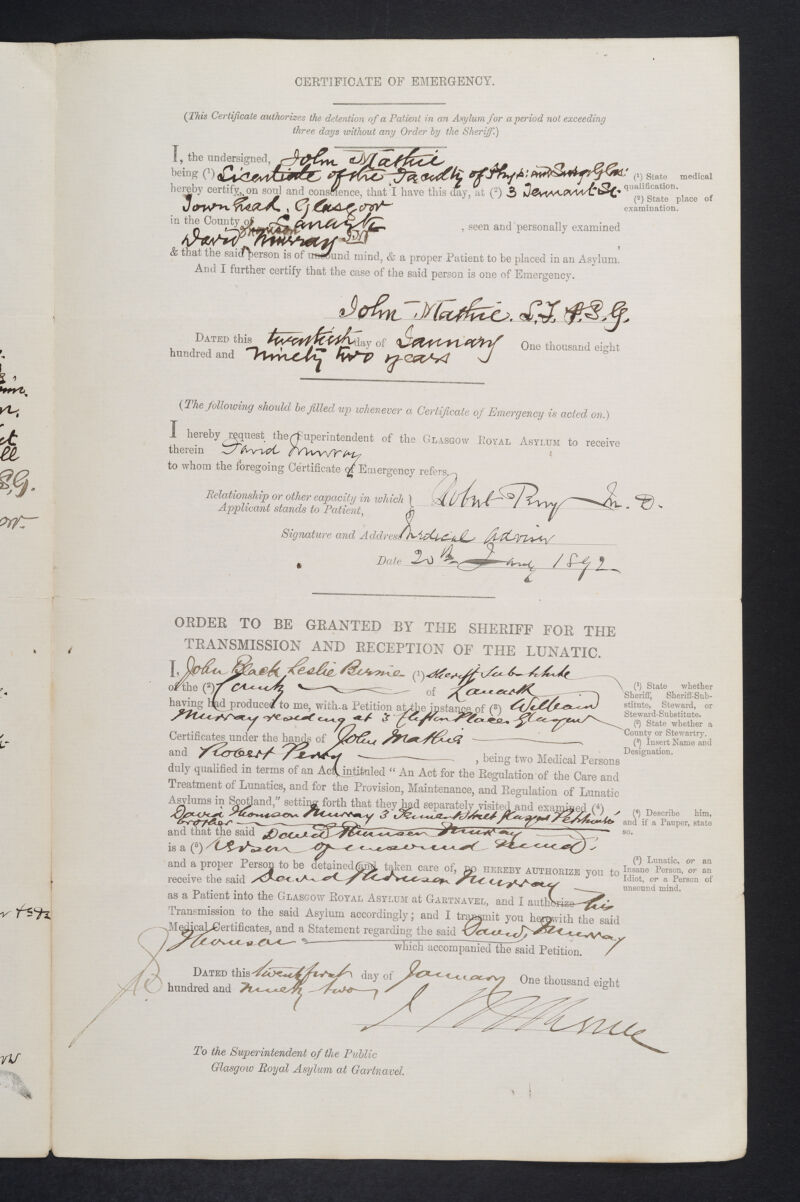 CERTIFICATE OF EMERGENCY.
(This Certificate authorizes the detention of a Patient in an Asylum for a period not exceeding
three days without any Order by the Sheriff.)
I, the undersigned, John Mathie
being (1) Licentiate of the Faculty of Phys: and Surgs Glas:
hereby certify, on soul and conscience, that I have this day, at (2) 3 Tennant St.
Townhead, Glasgow
in the County of Lanark
, seen and personally examined
David Thomson Murray
& that the said person is of unsound mind, & a proper Patient to be placed in an Asylum.
And I further certify that the case of the said person is one of Emergency.
(1) State medical
qualification.
(2) State place of
examination.
John Mathie. L.F.P.S.G.
DATED this twentieth day of January One thousand eight
hundred and ninety two years
(The following should be filled up whenever a Certificate of Emergency is acted on.)
I hereby request the Superintendent of the GLASGOW ROYAL ASYLUM to receive
therein David Murray
to whom the foregoing Certificate of Emergency refers.
Relationship or other capacity in which
Applicant stands to Patient,
Robert Perry M.D.
Signature and Address Medical Adviser
Date 20th Jany 1892
ORDER TO BE GRANTED BY THE SHERIFF FOR THE
TRANSMISSION AND RECEPTION OF THE LUNATIC.
I, John Black Leslie Birnie (1) Sheriff Substitute
of the (2) County of Lanark
having had produced to me, with a Petition at the instance of (3) William
Murray residing at 3 Clifton Place Glasgow
Certificates under the hands of John Mathie
and Robert Perry, being two Medical Persons
duly qualified in terms of an Act intituled "An Act for the Regulation of the Care and
Treatment of Lunatics, and for the Provision, Maintenance, and Regulation of Lunatic
Asylums in Scotland," setting forth that they had separately visited and examined (4)
David Thomson Murray 3 Tennant Street Glasgow Petitioner's
brother
and that the said David Thomson Murray
is a (5) Person of unsound mind,
and a proper Person to be detained and taken care of, DO HEREBY AUTHORIZE you to
receive the said David Thomson Murray
as a Patient into the GLASGOW ROYAL ASYLUM AT GARTNAVEL, and I authorize his
Transmission to the said Asylum accordingly; and I transmit you herewith the said
Medical Certificates, and a Statement regarding the said David Murray
Thomson
which accompanied the said Petition.
(1) State whether
Sheriff, Sheriff-Sub-
stitute, Steward, or
Steward-Substitute.
(2) State whether a
County or Stewartry.
(3) Insert Name and
Designation.
(4) Describe him,
and if a Pauper, state
so.
(5) Lunatic, or an
Insane Person, or an
Idiot, or a Person of
unsound mind.
DATED this twenty first day of January One thousand eight
hundred and ninety two
To the Superintendent of the Public
Glasgow Royal Asylum at Gartnavel.